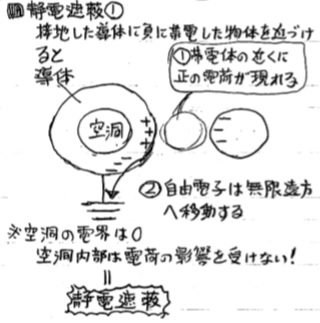 静電遮蔽①
接地した導体に負に帯電した物体を近づけ
ると
導体
①帯電体の近くに
正の電荷が現れる
空洞
+
+
+
②自由電子は無限遠方
へ移動する
※空洞の電界は0
空洞内部は電荷の影響を受けない!
静電遮蔽